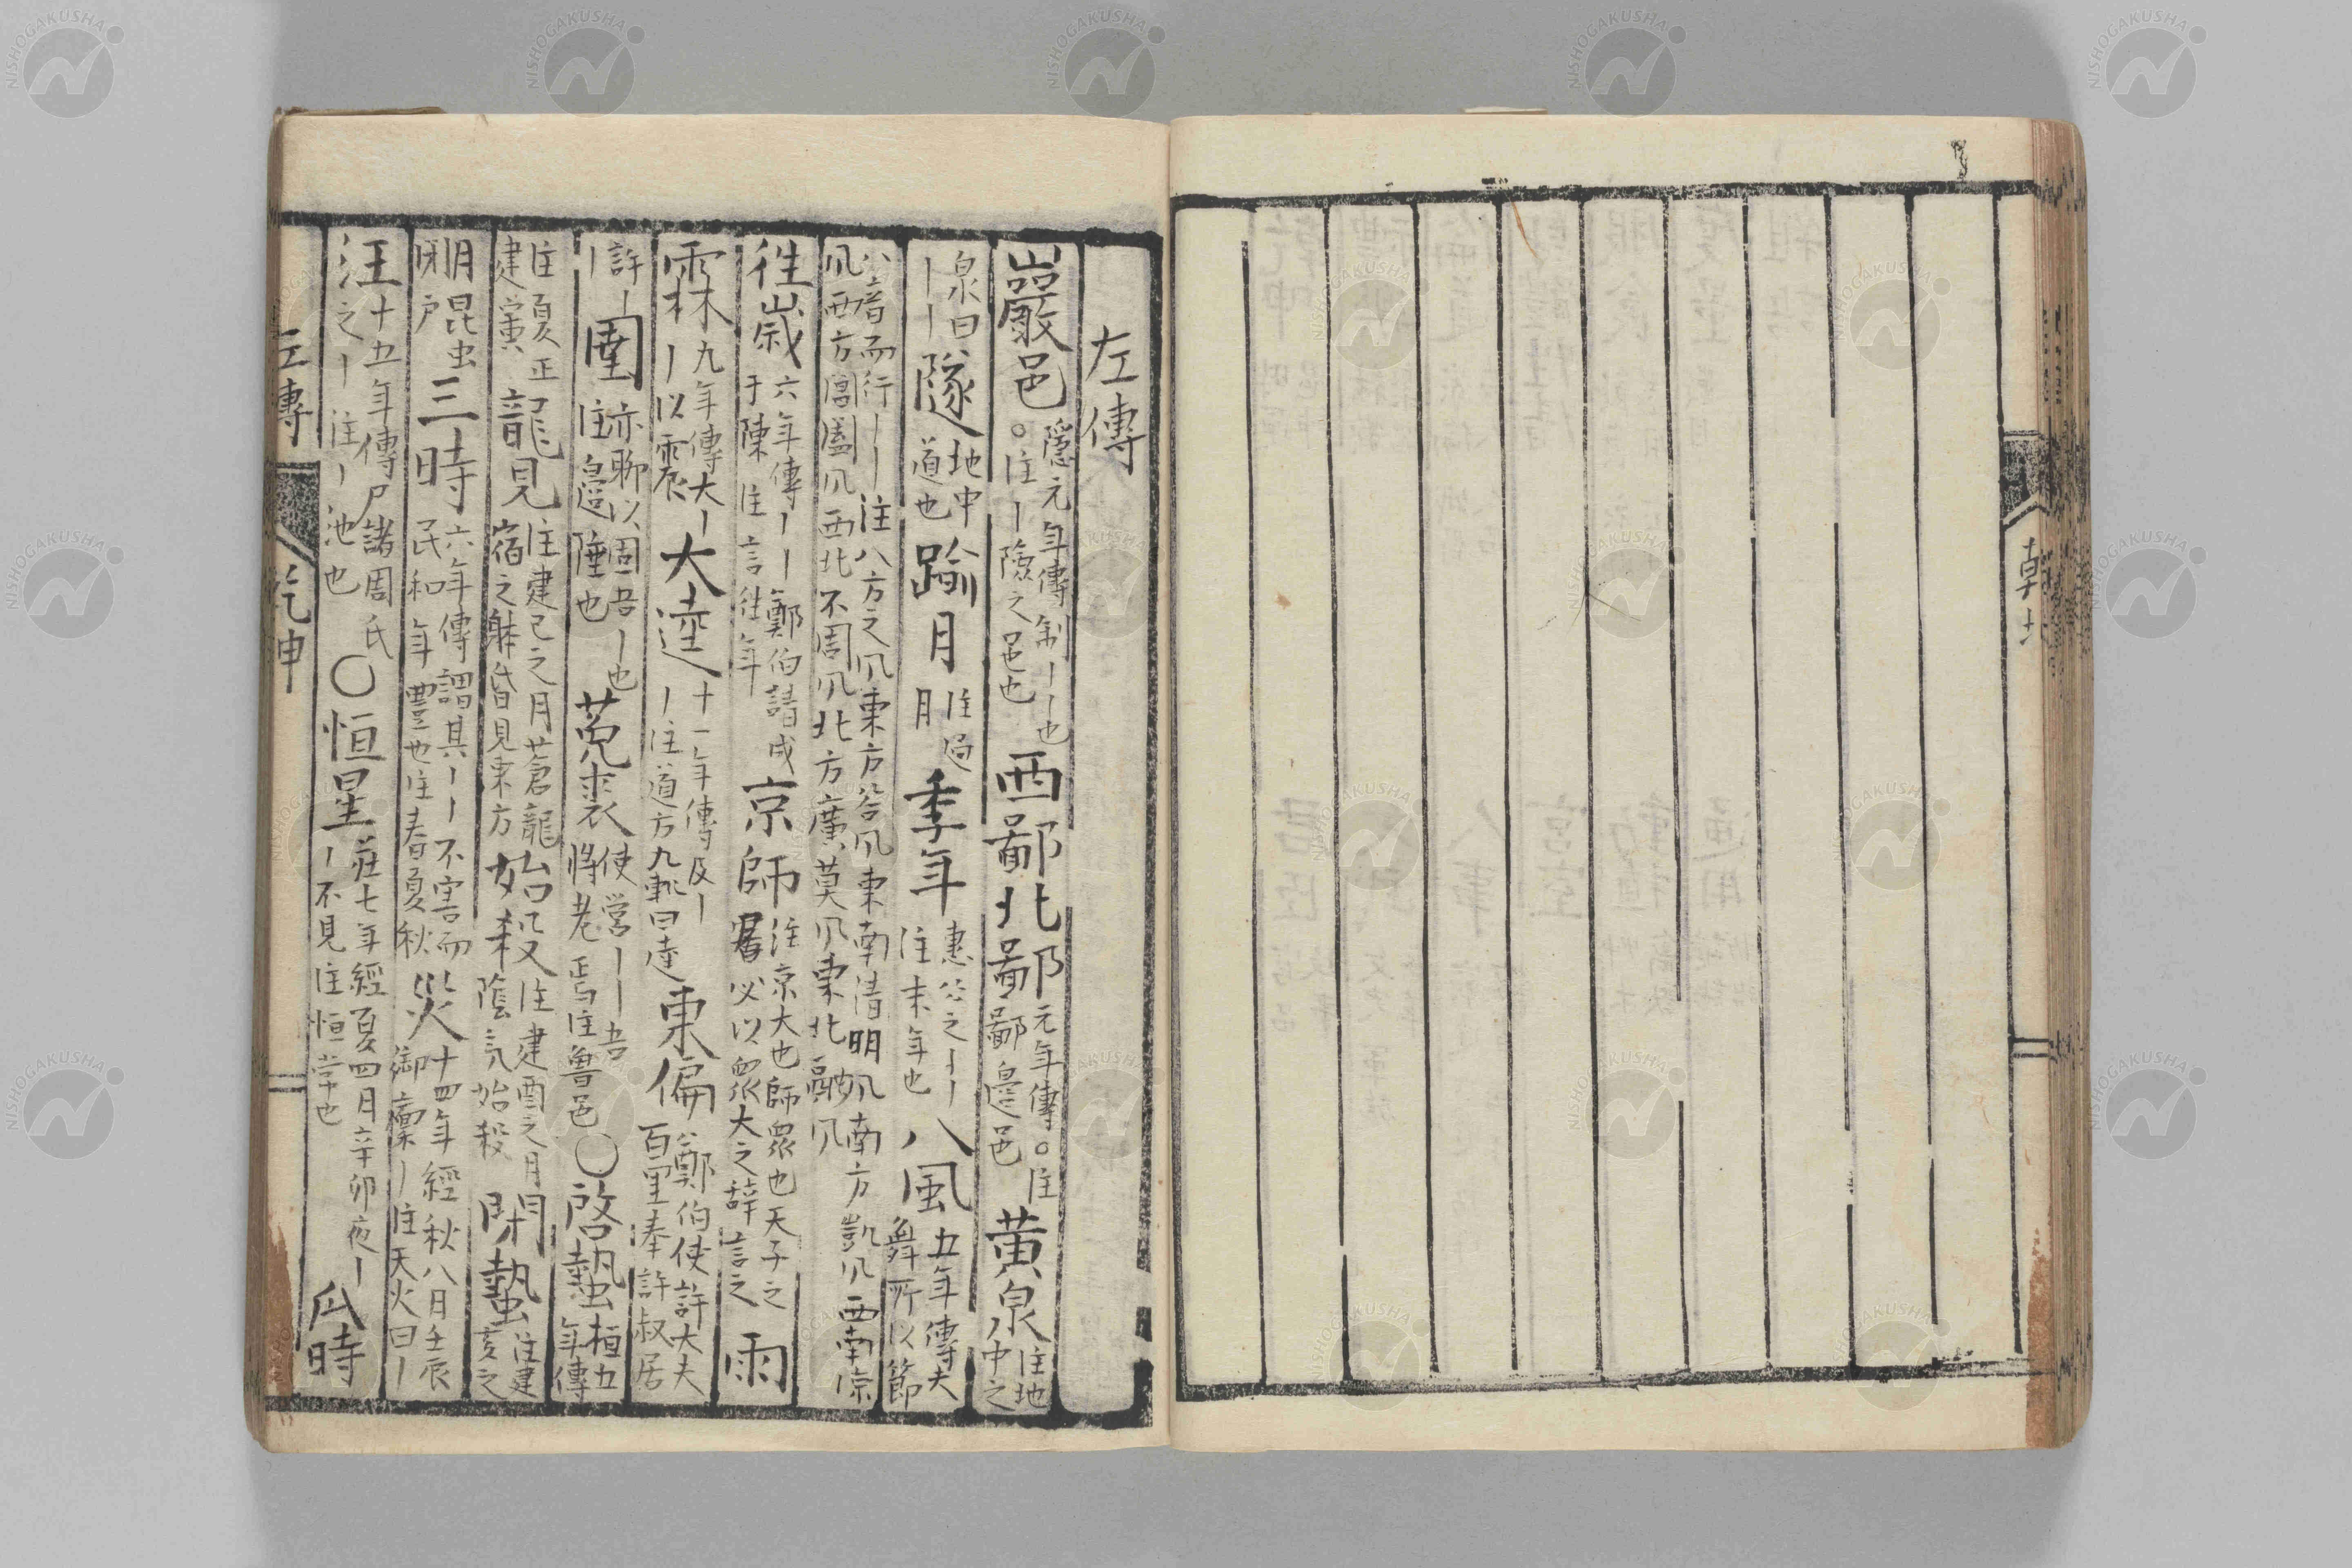 左傳
巖邑 隱元年傳制｜｜也 。注｜險之邑也 西鄙北鄙 元年傳。注 鄙邊邑 黃泉 注地中之
泉曰｜｜ 隧 地中道也 踰月 注過月 季年 惠公之｜｜ 注末年也 八風 五年傳夫舞所以節
八音而行｜｜注八方之风東方谷风東南清明风南方凱风西南凉
风西方閶闔风西北不周风北方廣莫风東北融风
往歲 六年傳｜｜鄭伯請成于陳 注言往年 京師 注京大也師眾也天子之 必以眾大之辞言之 雨
霖 九年傳大｜｜以震 大逵 十一年傳及｜｜注道方九軌曰逵 東偏 公鄭伯使許大夫百里奉許叔居
許｜｜ 圉 亦聊以固吾｜也 注邊陲也 菟裘 使營｜｜吾將老焉注魯邑 ○啓蟄 桓五年傳
注夏正建寅 龍見 注建巳之月蒼龍宿之躰昏見東方 始殺 注建酉之月陰氣始殺 閉蟄 注建亥之
月昆虫閉户 三時 六年傳謂其｜｜不害而民和年豐也注春夏秋 災 十四年經秋八月壬辰御廩｜注天火曰｜
汪 十五年傳尸諸周氏之｜注｜池也 ○恒星 莊七年經夏四月辛卯夜｜｜不見注恒常也 瓜時
左傳 乾坤